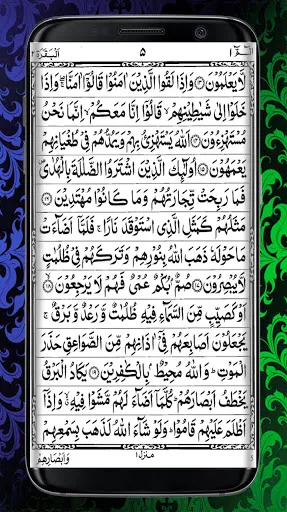 البقرة ٢
٥
الٓمّٓ ١
لَّا يَعْلَمُوْنَ ۝١٣ وَاِذَا لَقُوا الَّذِيْنَ اٰمَنُوْا قَالُوْٓا اٰمَنَّا ۖۚ وَاِذَا
خَلَوْا اِلٰى شَيٰطِيْنِهِمْ ۙ قَالُوْٓا اِنَّا مَعَكُمْ ۙ اِنَّمَا نَحْنُ
مُسْتَهْزِءُوْنَ ۝١٤ اَللّٰهُ يَسْتَهْزِئُ بِهِمْ وَيَمُدُّهُمْ فِيْ طُغْيَانِهِمْ
يَعْمَهُوْنَ ۝١٥ اُولٰٓئِكَ الَّذِيْنَ اشْتَرَوُا الضَّلٰلَةَ بِالْهُدٰى ۪
فَمَا رَبِحَتْ تِّجَارَتُهُمْ وَمَا كَانُوْا مُهْتَدِيْنَ ۝١٦
مَثَلُهُمْ كَمَثَلِ الَّذِي اسْتَوْقَدَ نَارًا ۚ فَلَمَّآ اَضَآءَتْ
مَا حَوْلَهٗ ذَهَبَ اللّٰهُ بِنُوْرِهِمْ وَتَرَكَهُمْ فِيْ ظُلُمٰتٍ
لَّا يُبْصِرُوْنَ ۝١٧ صُمٌّۢ بُكْمٌ عُمْيٌ فَهُمْ لَا يَرْجِعُوْنَ ۝١٨
اَوْ كَصَيِّبٍ مِّنَ السَّمَآءِ فِيْهِ ظُلُمٰتٌ وَّرَعْدٌ وَّبَرْقٌ ۚ
يَجْعَلُوْنَ اَصَابِعَهُمْ فِيْٓ اٰذَانِهِمْ مِّنَ الصَّوَاعِقِ حَذَرَ
الْمَوْتِ ۭ وَاللّٰهُ مُحِيْطٌۢ بِالْكٰفِرِيْنَ ۝١٩ يَكَادُ الْبَرْقُ
يَخْطَفُ اَبْصَارَهُمْ ۭ كُلَّمَآ اَضَآءَ لَهُمْ مَّشَوْا فِيْهِ ۙ وَاِذَآ
اَظْلَمَ عَلَيْهِمْ قَامُوْا ۭ وَلَوْ شَآءَ اللّٰهُ لَذَهَبَ بِسَمْعِهِمْ
منزل ١
وَاَبْصَارِهِمْ